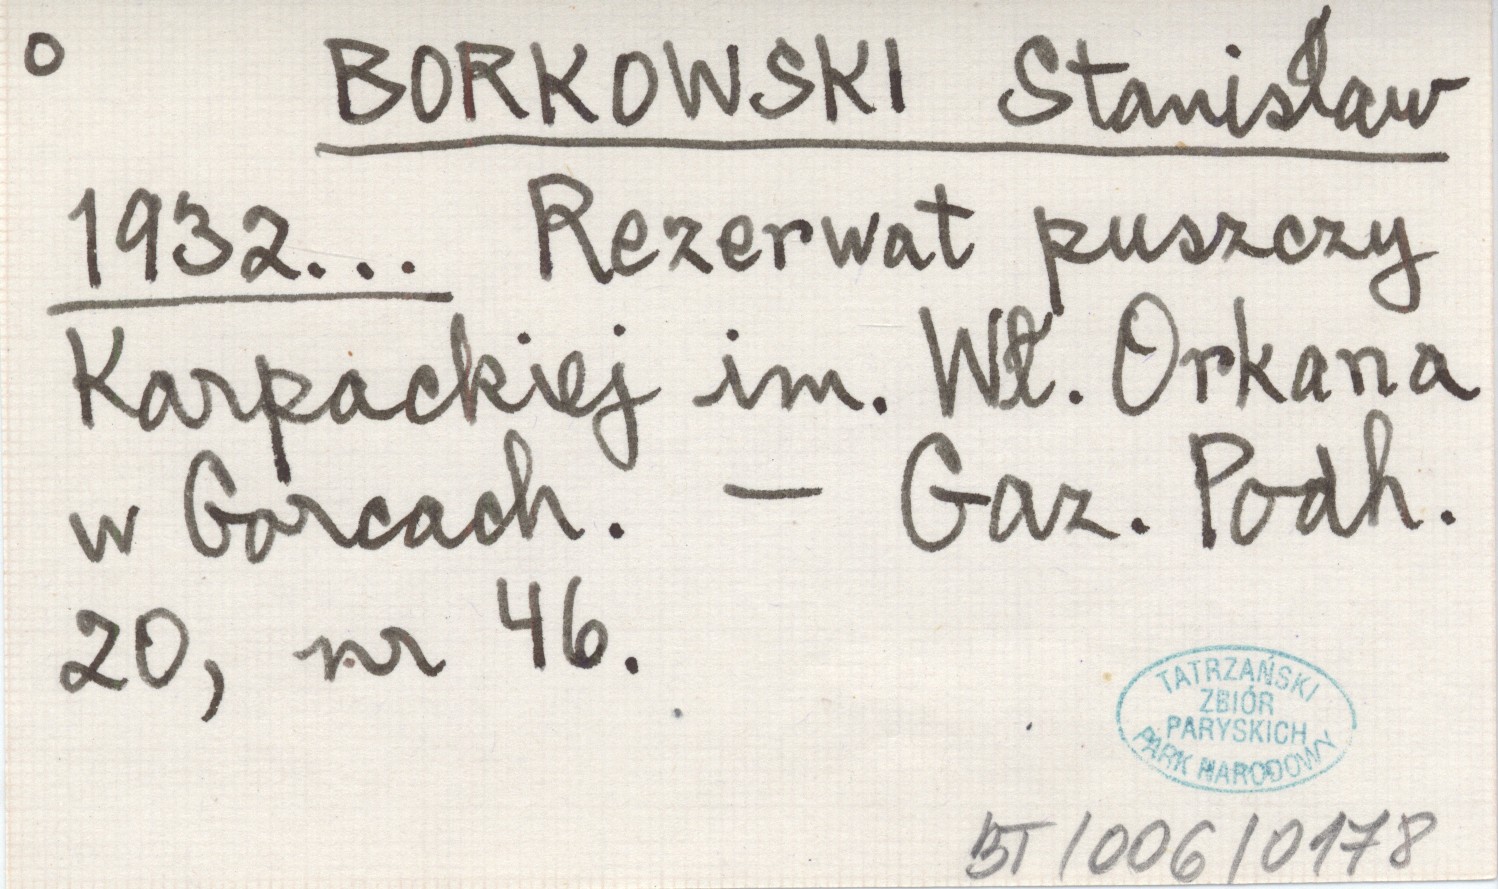 o BORKOWSKI Stanisław
1932... Rezerwat puszczy
Karpackiej im. Wł. Orkana
w Gorcach. — Gaz. Podh.
20, nr 46.
TATRZAŃSKI
ZBIÓR
PARYSKICH
PARK NARODOWY
BT/006/0178